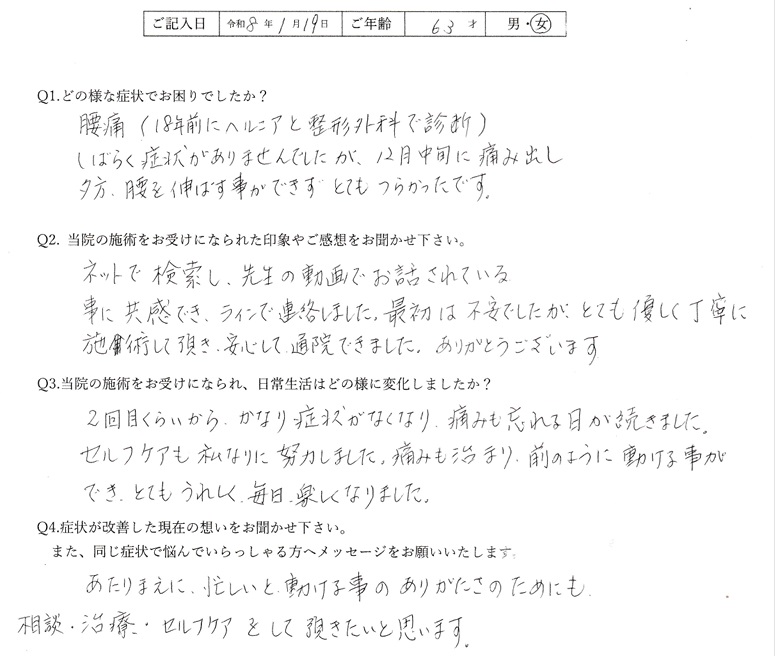 ご記入日 令和8年1月19日 ご年齢 63才 男・女
Q1.どの様な症状でお困りでしたか？
腰痛（18年前にヘルニアと整形外科で診断）
しばらく症状がありませんでしたが、12月中旬に痛み出し
夕方、腰を伸ばす事ができずとてもつらかったです。
Q2. 当院の施術をお受けになられた印象やご感想をお聞かせ下さい。
ネットで検索し、先生の動画でお話されている
事に共感でき、ラインで連絡しました。最初は不安でしたが、とても優しく丁寧に
施術して頂き、安心して通院できました。ありがとうございます
Q3.当院の施術をお受けになられ、日常生活はどの様に変化しましたか？
2回目くらいから、かなり症状がなくなり、痛みも忘れる日が続きました。
セルフケアも私なりに努力しました。痛みも治まり、前のように動ける事が
でき、とてもうれしく、毎日、楽しくなりました。
Q4.症状が改善した現在の想いをお聞かせ下さい。
また、同じ症状で悩んでいらっしゃる方へメッセージをお願いいたします。
あたりまえに、忙しいと動ける事のありがたさのためにも、
相談・治療・セルフケアをして頂きたいと思います。